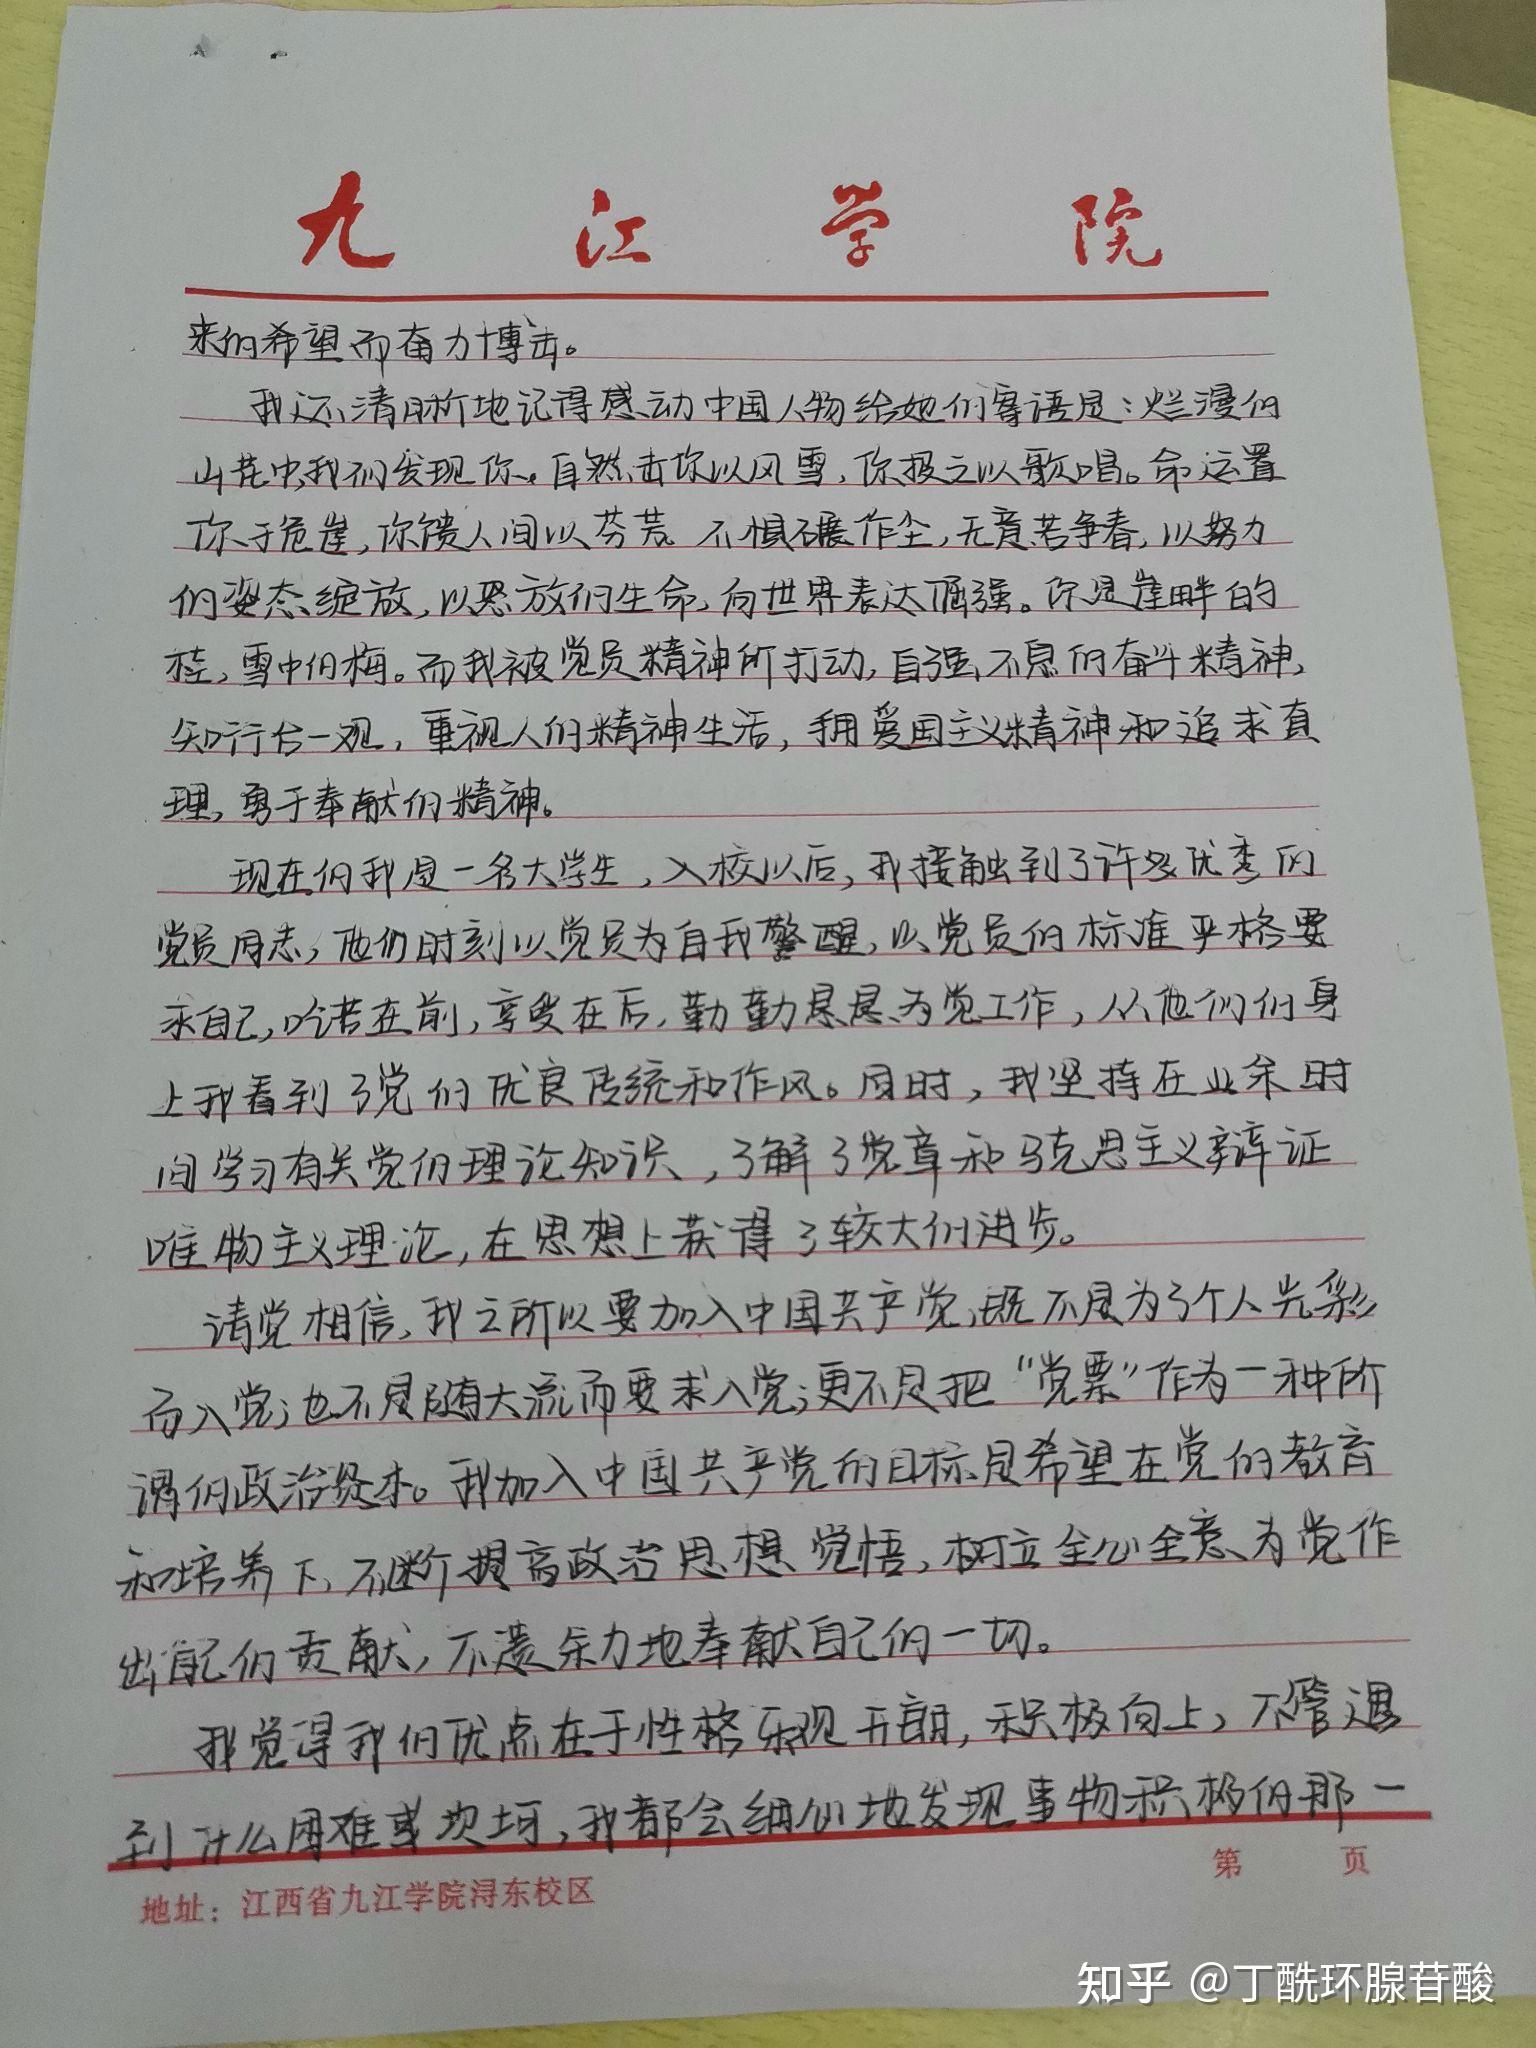 九江学院
来的希望而奋力博击。
我还清晰地记得感动中国人物给她的寄语是：烂漫的
山花中,我们发现你。自然击你以风雪，你报之以歌唱。命运置
你于危崖，你馈人间以芬芳 不惧碾作尘，无意苦争春，以努力
的姿态绽放，以怒放的生命，向世界表达倔强。你是崖畔的
桂，雪中的梅。而我被党员精神所打动，自强不息的奋斗精神，
知行合一观，重视人的精神生活，拥爱国主义精神和追求真
理，勇于奉献的精神。
现在的我是一名大学生，入校以后，我接触到了许多优秀的
党员同志，他们时刻以党员为自我警醒，以党员的标准严格要
求自己，吃苦在前，享受在后，勤勤恳恳为党工作，从他们的身
上我看到了党的优良传统和作风。同时，我坚持在业余时
间学习有关党的理论知识，了解了党章和马克思主义辩证
唯物主义理论，在思想上获得了较大的进步。
请党相信，我之所以要加入中国共产党，既不是为了个人光彩
而入党；也不是随大流而要求入党；更不是把“党票”作为一种所
谓的政治资本。我加入中国共产党的目标是希望在党的教育
和培养下，不断提高政治思想觉悟，树立全心全意为党作
出自己的贡献，不遗余力地奉献自己的一切。
我觉得我的优点在于性格乐观开朗，积极向上，不管遇
到什么困难或坎坷，我都会细心地发现事物积极的那一
第 页
地址：江西省九江学院浔东校区
知乎 @丁酰环腺苷酸